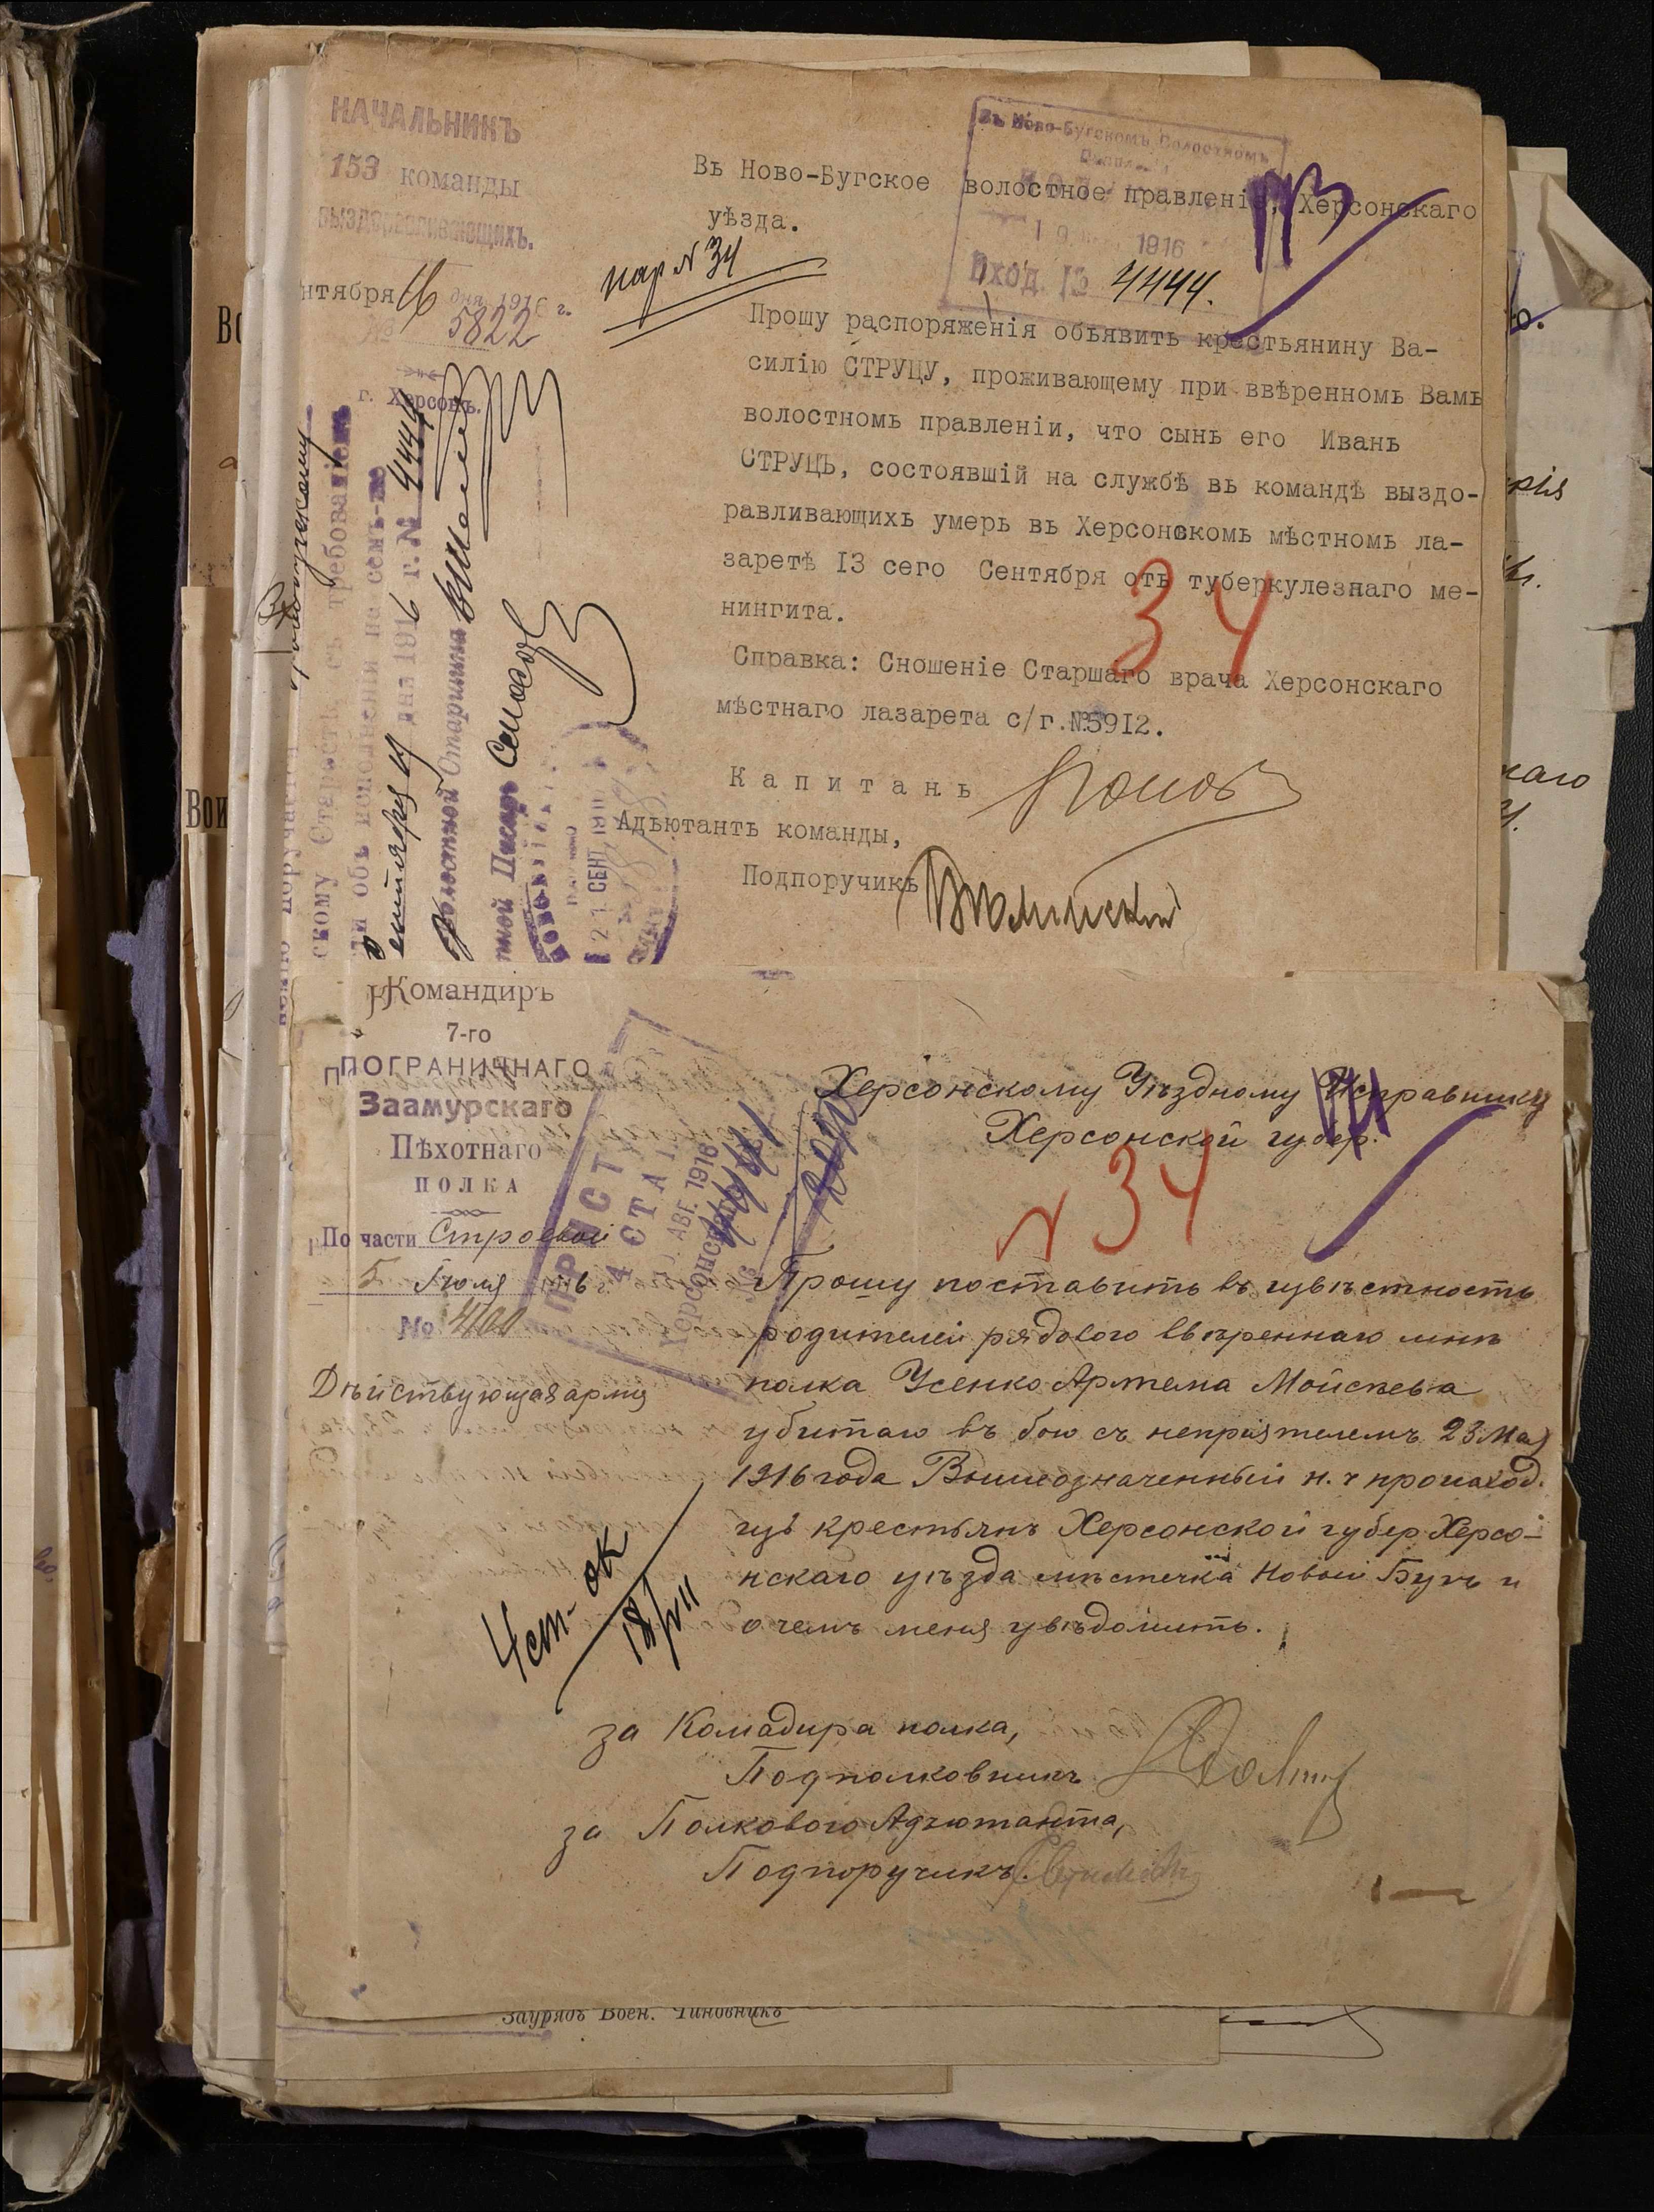 НАЧАЛЬНИКЪ
153 команды
выздоравливающихъ.
нтября 16 дня 1916 г.
№ 5822
г. Херсонъ.
Въ Ново-Бугскомъ Волостномъ
1916
Вход. № 4444.
Въ Ново-Бугское волостное правленіе, Херсонскаго
уѣзда.
нар № 34
Прошу распоряженія объявить крестьянину Ва-
силію СТРУЦУ, проживающему при ввѣренномъ Вамъ
волостномъ правленіи, что сынъ его Иванъ
СТРУЦЪ, состоявшій на службѣ въ командѣ выздо-
равливающихъ умеръ въ Херсонскомъ мѣстномъ ла-
заретѣ I3 сего Сентября отъ туберкулезнаго ме-
нингита.
34
Справка: Сношеніе Старшаго врача Херсонскаго
мѣстнаго лазарета с/г.№5912.
Капитанъ Поповъ
Адъютантъ команды,
Подпоручикъ
скому Старостѣ съ требованіемъ
объ исполненіи на семъ-же
сентября дня 1916 г. № 4444
Волостной Старшина
Писарь
21 СЕН. 191
Командиръ
7-го
ПОГРАНИЧНАГО
Заамурскаго
Пѣхотнаго
ПОЛКА
По части Строевой
5 Іюля
№ 4100
Дѣйствующая армія
ПРИСТ
4 СТАН
АВГ. 1916
Херсонск
Херсонскому Уѣздному Исправнику
Херсонской губер.
N 34
Прошу поставить въ извѣстность
родителей рядового ввѣреннаго мнѣ
полка Усенко Артема Мойсѣева
убитаго въ бою съ непріятелемъ 23 Мая
1916 года Вышеозначенный н. ч происход.
изъ крестьянъ Херсонской губер Херсо-
нскаго уѣзда мѣстечка Новый Бугъ и
о чемъ меня увѣдомить.
18/VII
за Комадира полка,
Подполковникъ
за Полкового Адъютанта,
Подпоручикъ
Заурядъ Воен. Чиновникъ